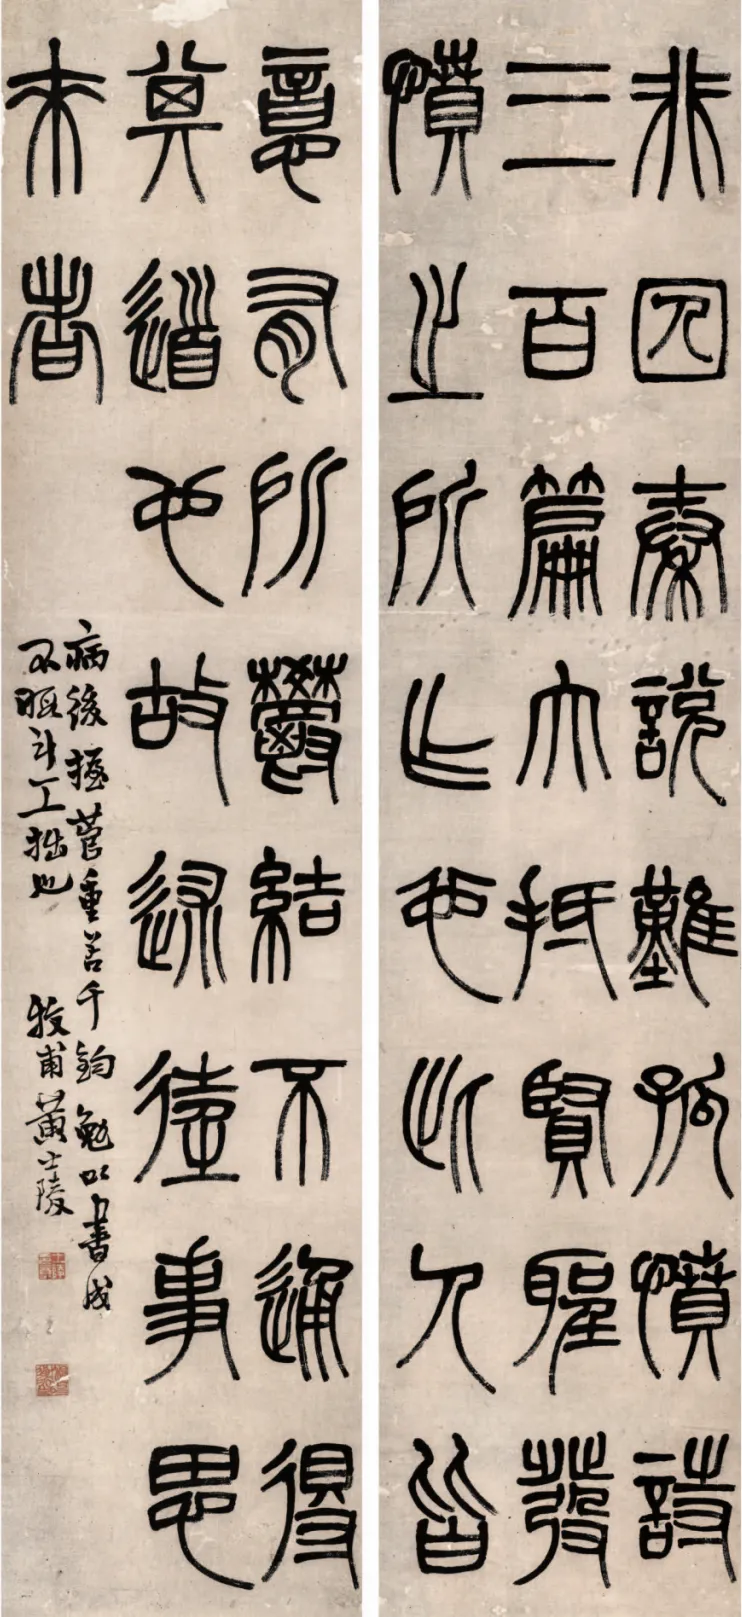 非囚秦說難孤憤詩
三百篇大抵賢聖發
憤之所作也此人皆
意有所鬱結不通得
其道也故述往事思
來者
病後握管重若千鈞勉以書成
不暇計工拙也 牧甫黃士陵